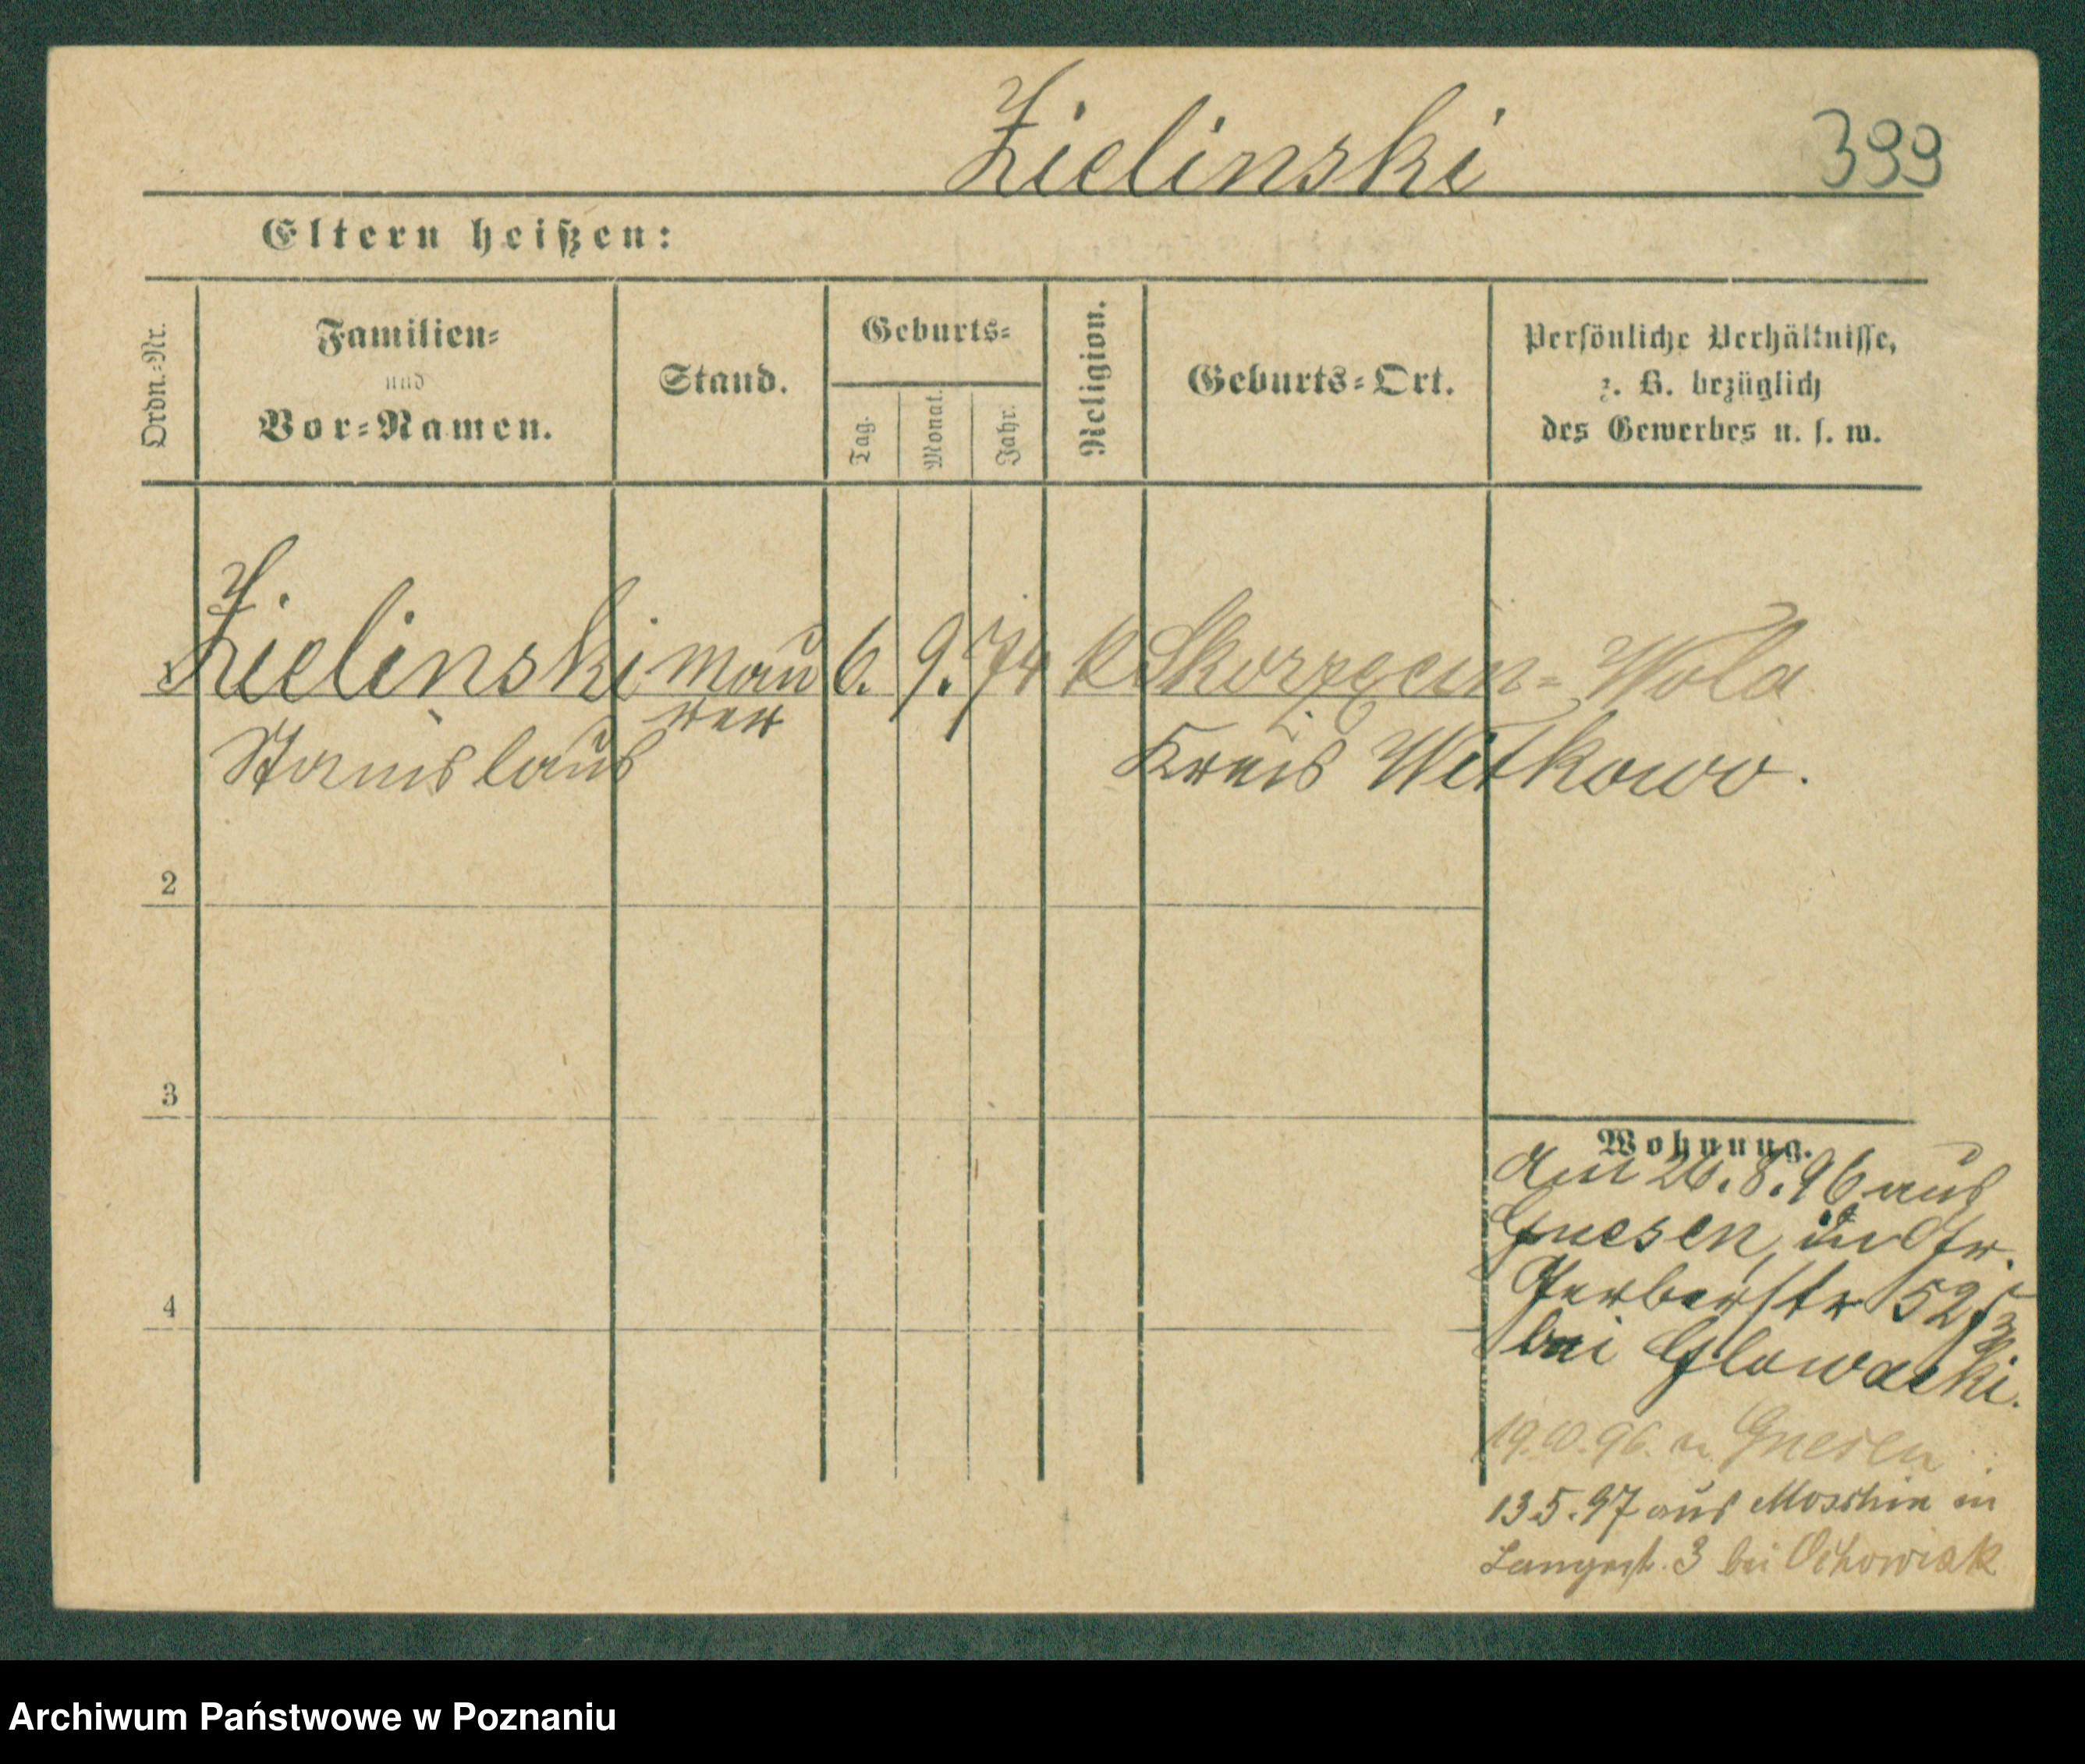 Zielinski 399
Eltern heißen:
Ordn.-Nr.
Familien-
und
Vor-Namen.
Stand.
Geburts-
Tag.
Monat.
Jahr.
Religion.
Geburts-Ort.
Persönliche Verhältnisse,
z. B. bezüglich
des Gewerbes u. s. w.
1 Zielinski Mau 6. 9. 74 k Skorzencin-Wola
Stanislaus rer Kreis Witkowo.
2
3
4
Wohnung.
Am 26.8.96 aus
Gnesen, in Gr.
Gerberstr 52
bei Glowacki.
19.10.96. n. Gnesen
13.5.97 aus Moschin in
Langestr. 3 bei Ochowiak
Archiwum Państwowe w Poznaniu